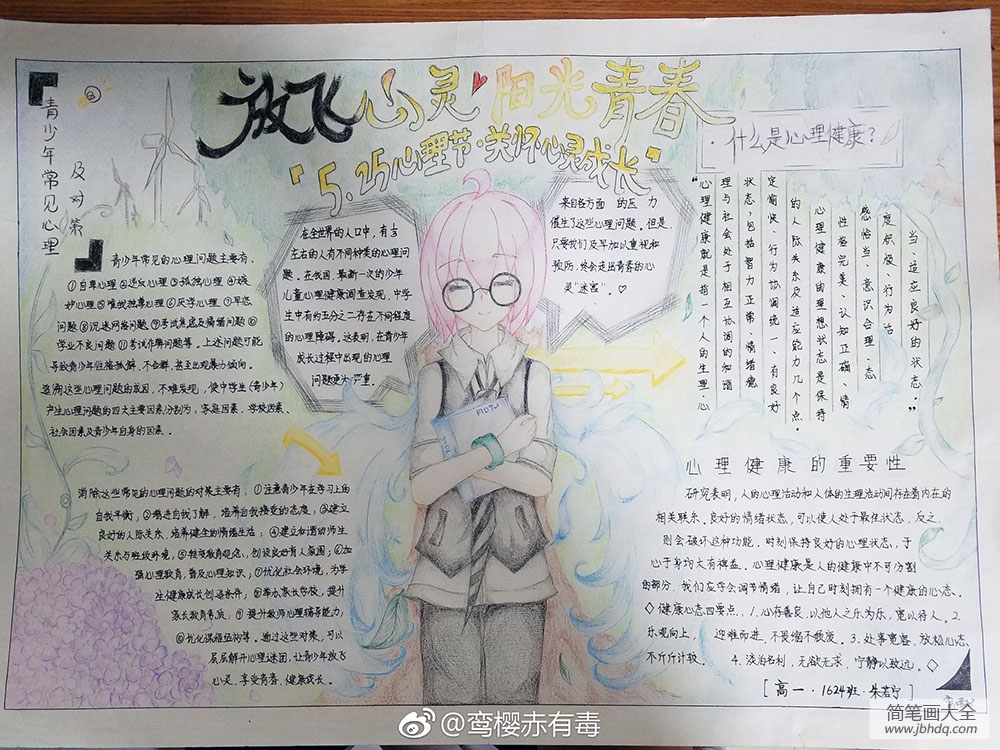 放飞心灵阳光青春
"5.25心理节·关怀心灵成长"
青少年常见心理
及对策
青少年常见的心理问题主要有、
①自卑心理②逆反心理③孤独心理④嫉
妒心理⑤唯我独尊心理⑥厌学心理⑦早恋
问题⑧沉迷网络问题⑨考试焦虑及情绪问题⑩
学业不良问题⑪考试作弊问题等。上述问题可能
导致青少年性格孤僻、不合群、甚至出现暴力倾向。
追溯这些心理问题的成因，不难发现，使中学生(青少年)
产生心理问题的四大主要因素分别为，家庭因素、学校因素、
社会因素及青少年自身的因素。
在全世界的人口中，有
左右的人有不同种类的心理问
题。在我国，最新一次的少年
儿童心理健康调查发现，中学
生中有约五分之二存在不同程度
的心理障碍。这表明，在青少年
成长过程中出现的心理
问题更为严重。
来自各方面 的压 力
催生了这些心理问题。但是，
只要我们及早加以重视和
预防，终会走出青春的心
灵"迷宫"。♡
·什么是心理健康？
"心理健康就是指一个人的生理、心
理与社会处于相互协调的和谐
状态，包括智力正常、情绪稳
定愉快、行为协调统一、有良好
的人际关系及适应能力几个点。
心理健康的理想状态是保持
性格完美、认知正确、情
感恰当、意识合理、态
度积极、行为恰
当、适应良好的状态。"
消除这些常见的心理问题的对策主要有，①注意青少年在学习上的
自我平衡；②增进自我了解，培养自我接受的态度；③建立
良好的人际关系，培养健全的情绪生活；④建立和谐的师生
关系与班级环境；⑤转变教育观念，创设良好育人氛围；⑥加
强心理教育，普及心理知识；⑦优化社会环境，为学
生健康成长创造条件；⑧举办家长学校，提升
家长教育素质；⑨提升教师心理辅导能力；
⑩优化课程结构等。通过这些对策，可以
层层解开心理迷团，让青少年放飞
心灵，享受青春，健康成长。
心理健康的重要性
研究表明，人的心理活动和人体的生理活动间存在着内在的
相关联系，良好的情绪状态，可以使人处于最佳状态，反之，
则会破坏这种功能。时刻保持良好的心理状态，于
心于身均大有裨益。心理健康是人的健康中不可分割
的部分，我们应学会调节情绪，让自己时刻拥有一个健康的心态。
◇健康心态四要点、1.心存善良，以他人之乐为乐，宽以待人。2.
乐观向上， 迎难而进，不畏缩不颓废。3.处事宽容，放松心态，
不斤斤计较。 4.淡泊名利，无欲无求，宁静以致远。◇
[高一·1624班·朱若宁]
@鸾樱赤有毒
简笔画大全
www.jbhdq.com